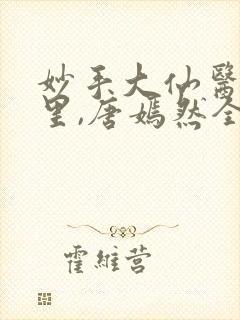 妙手大仙醫
里,唐嫣然全
霍維营